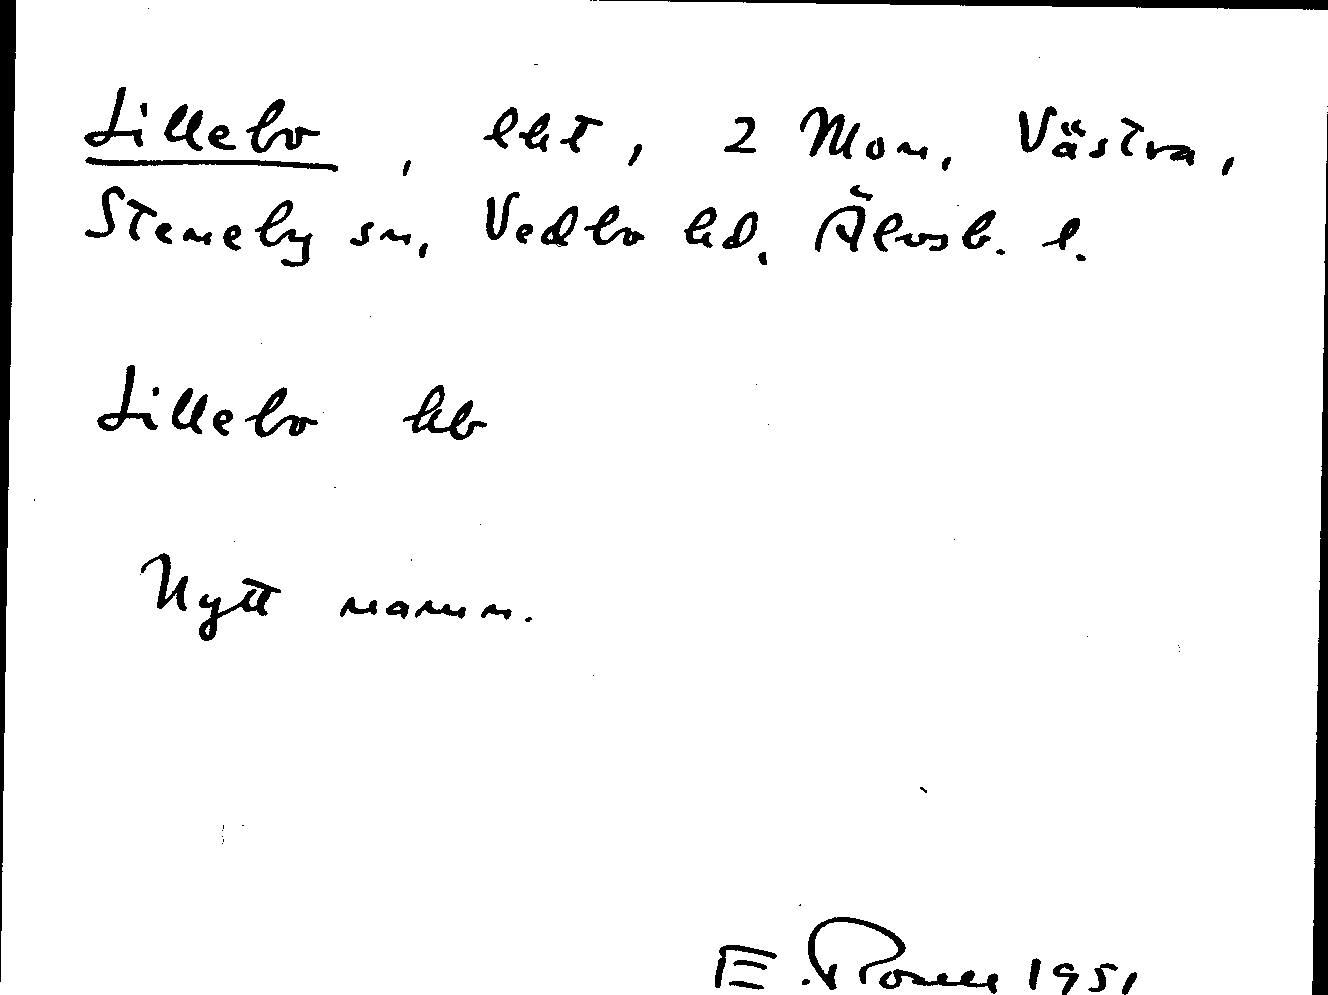 Lillebo, lht, 2 Mon, Västra,
Steneby sn, Vedbo hd, Älvsb. l.
Lillebo hb
Nytt namn.
E. 1951